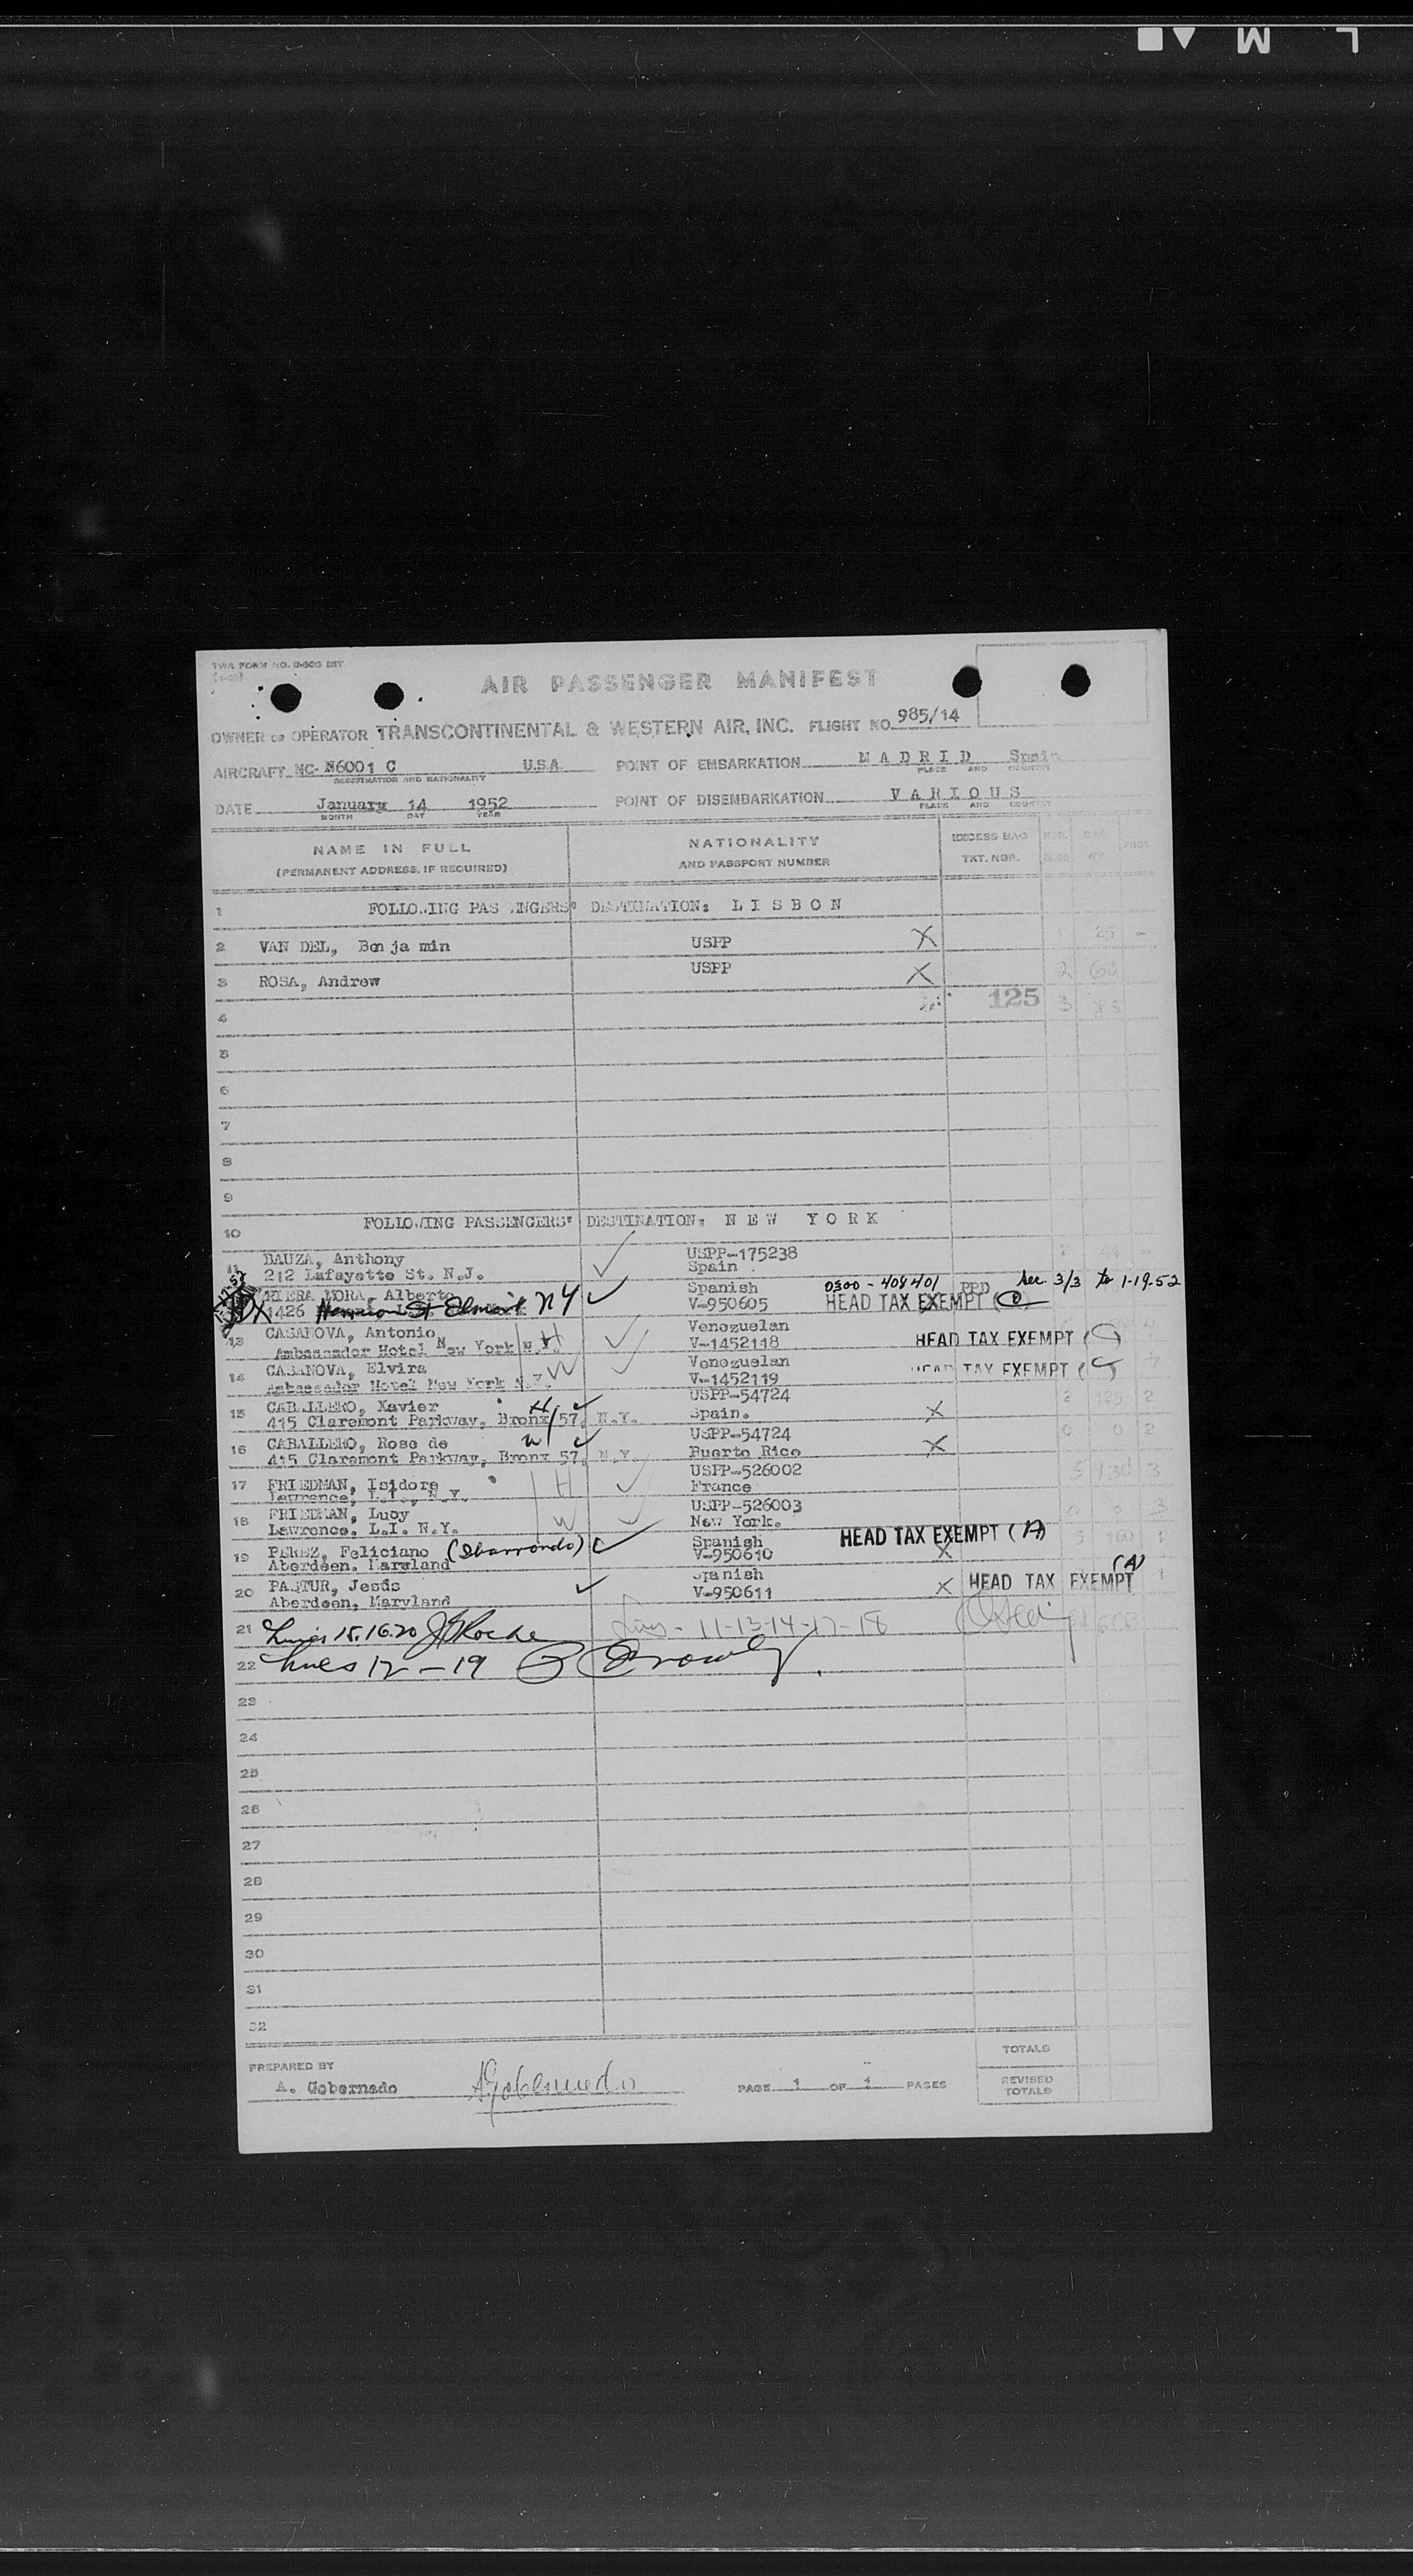 TWA FORM NO.
AIR PASSENGER MANIFEST
OWNER OR OPERATOR TRANSCONTINENTAL & WESTERN AIR, INC. FLIGHT NO. 985/14
AIRCRAFT NC- N6001 C U.S.A. POINT OF EMBARKATION M A D R I D Spain
REGISTRATION AND NATIONALITY PLACE AND COUNTRY
DATE January 14 1952 POINT OF DISEMBARKATION V A R I O U S
MONTH DAY YEAR PLACE AND COUNTRY
NAME IN FULL NATIONALITY EXCESS BAG
(PERMANENT ADDRESS, IF REQUIRED) AND PASSPORT NUMBER TKT. NBR.
1 DESTINATION: L I S B O N
2 VAN DEL, Ben ja min USPP X 25 -
3 ROSA, Andrew USPP X 2 60
4 125 3 85
5
6
7
8
9
10 FOLLOWING PASSENGERS' DESTINATION: N E W Y O R K
11 BAUZA, Anthony USPP-175238
212 Lafayette St. N.J. Spain
RIERA MORA, Alberto Spanish 0300-408401 PPD 3/3 to 1-19-52
1426 St Elmont NY V-950605 HEAD TAX EXEMPT
13 CASANOVA, Antonio Venezuelan
Ambassador Hotel New York N.Y. H V-1452118 HEAD TAX EXEMPT (C)
14 CASANOVA, Elvira Venezuelan
Ambassador Hotel New York N.Y. W V-1452119 HEAD TAX EXEMPT (C)
15 CABALLERO, Xavier H USPP-54724 2 125 2
415 Claremont Parkway, Bronx 57, N.Y. Spain. X
16 CABALLERO, Rose de W USPP-54724 0 0 2
415 Claremont Parkway, Bronx 57, N.Y. Puerto Rico X
17 FRIEDMAN, Isidore H USPP-526002 5 130 3
Lawrence, L.I., N.Y. France
18 FRIEDMAN, Lucy W USPP-526003 3
Lawrence, L.I. N.Y. New York.
19 PEREZ, Feliciano Spanish HEAD TAX EXEMPT (A) 5 160 1
Aberdeen, Maryland V-950610 X
20 PASTUR, Jesús Spanish HEAD TAX EXEMPT (A) 1
Aberdeen, Maryland V-950611 X
21 Lines 15.16.20 J Roche Lines - 11-13-14-17-18
22 Lines 12-19
23
24
25
26
27
28
29
30
31
32
TOTALS
PREPARED BY
A. Gobernado AGobernado PAGE 1 OF 1 PAGES REVISED TOTALS